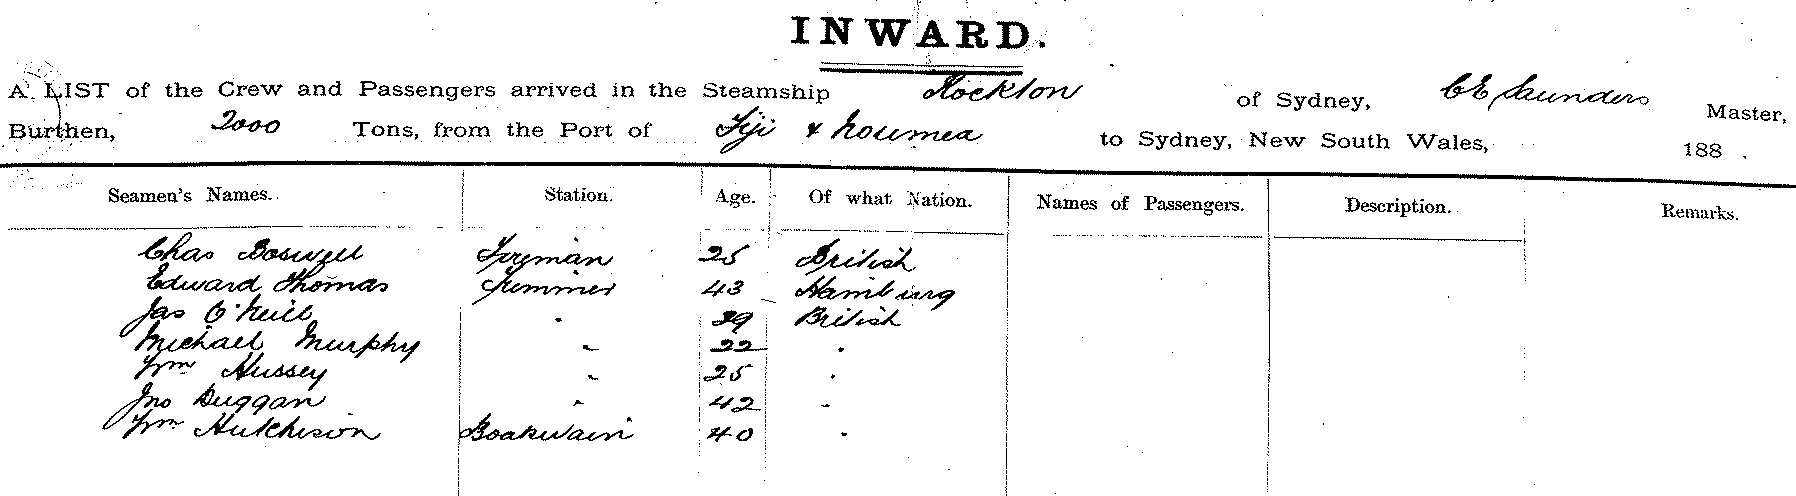 INWARD.
A LIST of the Crew and Passengers arrived in the Steamship Rockton of Sydney, C E Saunders Master,
Burthen, 2000 Tons, from the Port of Fiji & Noumea to Sydney, New South Wales, 188 .
Seamen's Names. Station. Age. Of what Nation. Names of Passengers. Description. Remarks.
Chas Boswell Fireman 25 British
Edward Thomas Trimmer 43 Hamburg
Jas O'Neill " 29 British
Michael Murphy " 22 "
Wm Hussey " 25 "
Jno Duggan " 42 "
Wm Hutchison Boatswain 40 "